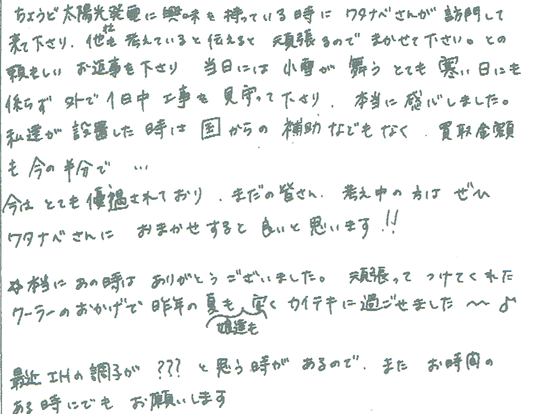 ちょうど太陽光発電に興味を持っている時にワタナベさんが訪問して
来て下さり、他社も考えていると伝えると 頑張るのでまかせて下さい。との
頼もしいお返事を下さり 当日には小雪が舞うとても寒い日にも
係らず外で1日中工事を見守って下さり、本当に感心しました。
私達が設置した時は国からの補助などもなく、買取金額
も今の半分で …
今はとても優遇されており、まだの皆さん、考え中の方はぜひ
ワタナベさんに おまかせすると良いと思います!!
☆本当にあの時はありがとうございました。 頑張ってつけてくれた
クーラーのおかげで昨年の夏も、安くカイテキに過ごせました〜♪
娘達も
最近IHの調子が ??? と思う時があるので、また お時間の
ある時にでもお願いします